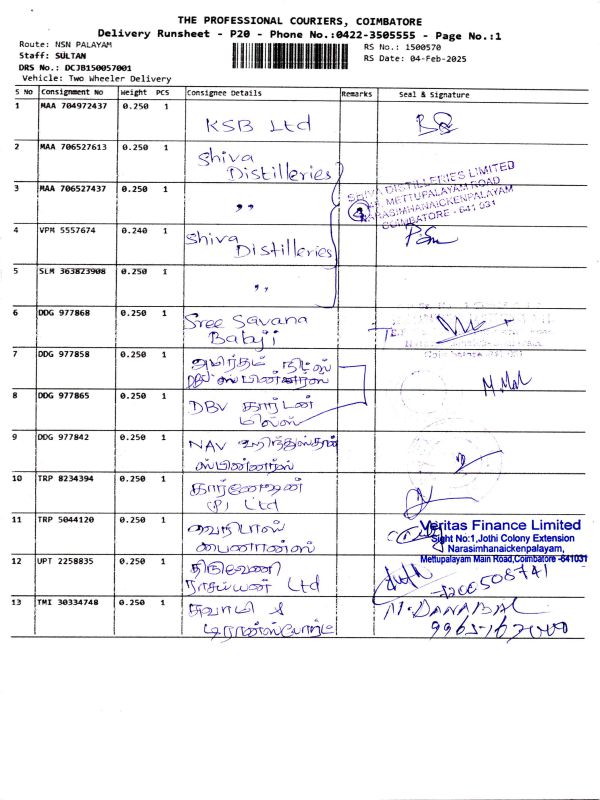 THE PROFESSIONAL COURIERS, COIMBATORE
Delivery Runsheet - P20 - Phone No.:0422-3505555 - Page No.:1
Route: NSN PALAYAM
RS No.: 1500570
Staff: SULTAN
RS Date: 04-Feb-2025
DRS No.: DCJB150057001
Vehicle: Two Wheeler Delivery
S No Consignment No Weight PCS Consignee Details Remarks Seal & Signature
1 MAA 704972437 0.250 1 KSB Ltd
2 MAA 706527613 0.250 1 Shiva
Distilleries
SHIVA DISTILLERIES LIMITED
METTUPALAYAM ROAD
NARASIMHANAICKENPALAYAM
COIMBATORE - 641 031
3 MAA 706527437 0.250 1 ,, 4
4 VPM 5557674 0.240 1 Shiva
Distilleries
5 SLM 363823908 0.250 1 ,,
6 DDG 977868 0.250 1 Sree Savana
Babyji
7 DDG 977858 0.250 1 அமிர்தம்
ஸ்பின்னர்ஸ்
8 DDG 977865 0.250 1 DBV கார்டன்
மில்ஸ்
9 DDG 977842 0.250 1 NAV ஹிந்துஸ்தான்
ஸ்பின்னர்ஸ்
10 TRP 8234394 0.250 1
(P) Ltd
11 TRP 5044120 0.250 1
பைனான்ஸ்
Veritas Finance Limited
Sight No:1,Jothi Colony Extension
Narasimhanaickenpalayam,
Mettupalayam Main Road,Coimbatore -641031
12 UPT 2258835 0.250 1 திரிவேணி
Ltd
13 TMI 30334748 0.250 1 சுவாமி &
டிரான்ஸ்போர்ட்